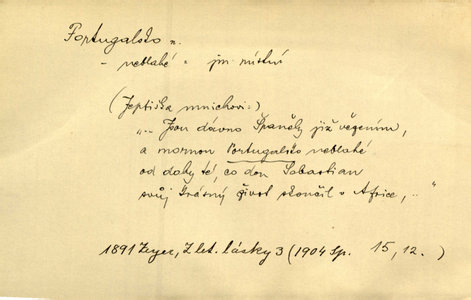 Portugalsko n.
- neblahé " jm. místní
(Jeptiška mnichovi:)
"... Jsou dávno Španěly již
a marnou Portugalsko neblahé
od doby té, co don Sebastian
svůj krásný život skončil v Africe, .. "
1891 Zeyer, Z let. lásky 3 (1904 Sp. 15, 12. )